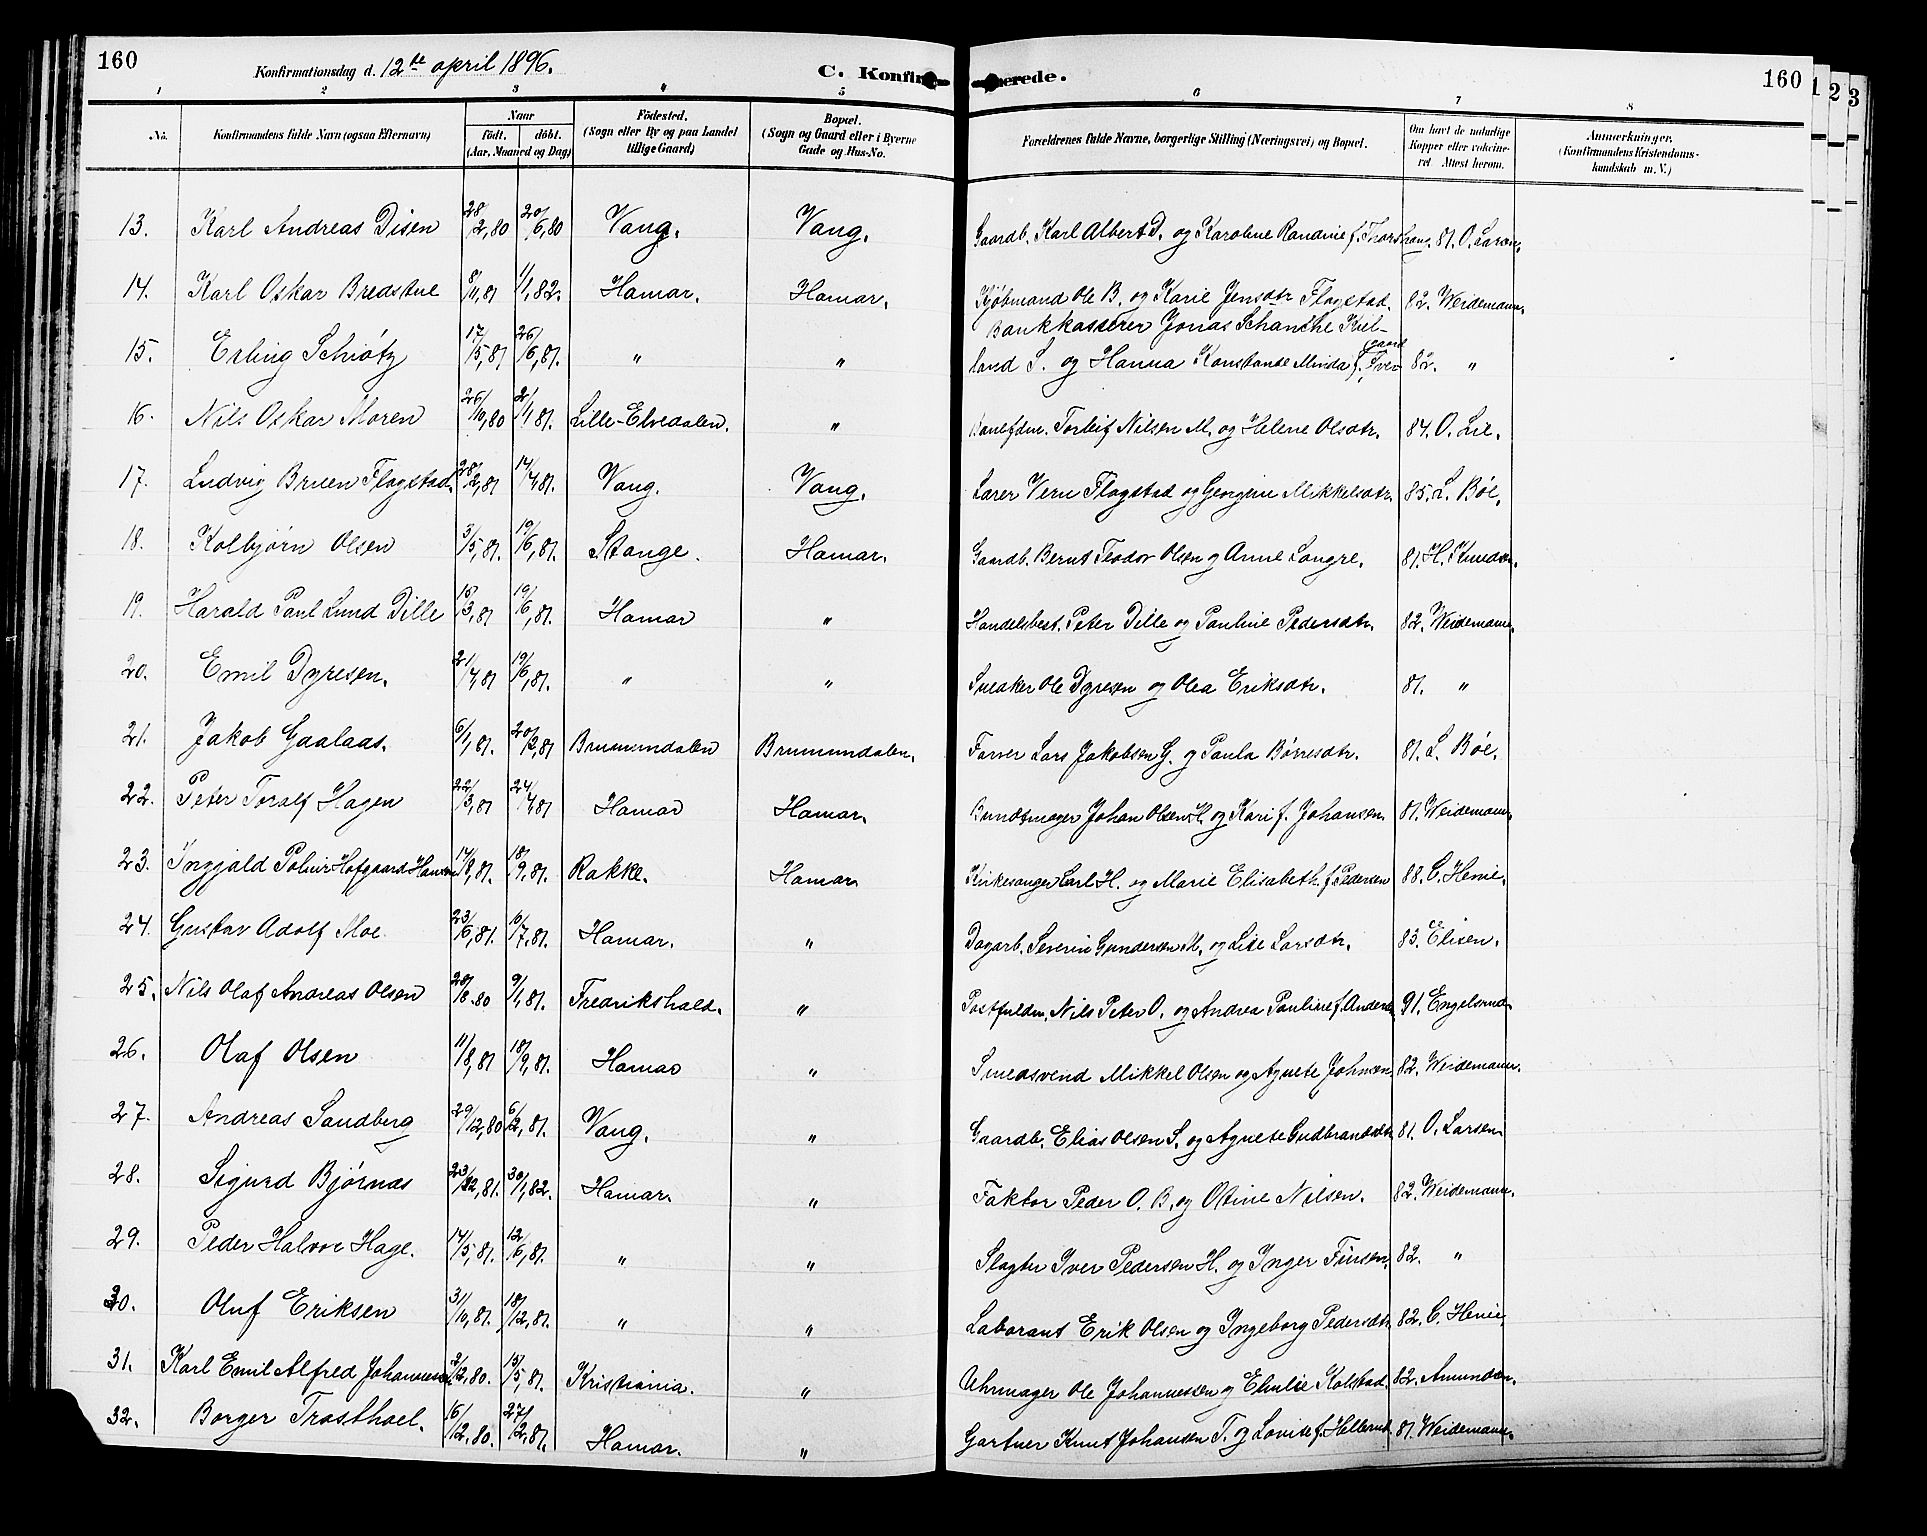 160 Konfirmationsdag d. 12te april 1896. C. Konfirmerede. 160
1 2 3 4 5 6 7 8
No. Konfirmandens fulde Navn (ogsaa Efternavn) Naar født. døbt. (Aar, Maaned og Dag) Fødested. (Sogn eller By og paa Landet tillige Gaard) Bopæl. (Sogn og Gaard eller i Byerne Gade og Hus-No. Forældrenes fulde Navne, borgerlige Stilling (Næringsvei) og Bopæl. Om havt de naturlige Kopper eller vakcineret Attest herom. Anmærkninger. (Konfirmandens Kristendomskundskab m. V.)
13. Karl Andreas Disen 28/2,80 20/6,80 Vang. Vang. Gaardb. Karl Albert D. og Karoline Randine f. Thorshaug. 81. O. Larsen
14. Karl Oskar Bredstue 8/11,81 1/1,82. Hamar. Hamar. Kjøbmand Ole B. og Karie Jensdtr Flagstad. 82. Weidemann.
15. Erling Schiøtz 17/5,81 26/6,81. " " Bankkasserer Jonas Schanche Kielland S. og Hanna Konstanse Minda f. Tvergaard 82. "
16. Nils Oskar Moren 26/10,80 2/1,81. Lille-Elvedalen. " Banefdm. Torleif Nilsen M. og Helene Olsdtr. 84. O. Lie.
17. Ludvig Bruen Flagstad. 28/2,81 14/4,81. Vang. Vang. Lærer Vern Flagstad og Georgine Mikkelsdtr. 85. L. Bøe.
18. Kolbjørn Olsen 3/5,81. 19/6,81. Stange. Hamar. Gaardb. Bernt Teodor Olsen og Anne Longre. 81. H. Knudsen.
19. Harald Paul Lund Dille 15/3,81 19/6,81. Hamar " Handelsbest. Peter Dille og Pauline Pedersdtr. 82. Weidemann.
20. Emil Dyresen. 21/4,81 19/6,81. " " Snedker Ole Dyresen og Olea Eriksdtr. 81. "
21. Jakob Gaalaas. 6/1,81. 20/2,81 Brumundalen Brumundalen. Farver Lars Jakobsen G. og Paula Børresdtr. 81. L. Bøe.
22. Peter Toralf Hagen 22/3,81 24/4,81 Hamar Hamar. Bundtmager Johan Olsen H. og Kari f. Johansen. 81. Weidemann.
23. Ingjald Polmir Hofgaard Hansen 14/8,81. 18/9,81. Rakke. Hamar Kirkesanger Carl H. og Marie Elisabeth f. Pedersen 88. C. Henie.
24. Gustav Adolf Moe 23/6,81. 16/7,81. Hamar. " Dagarb. Severin Gundersen M. og Lise Larsdtr. 83. Elisen.
25. Nils Olaf Andreas Olsen 28/8.80 9/1,81. Fredrikshald. " Postfuldm. Nils Peter O. og Andrea Pauline f. Andersen 91. Engelsrud.
26. Olaf Olsen 11/8,81 18/9,81. Hamar " Smedsvend Mikkel Olsen og Agnete Johnsen. 82. Weidemann.
27. Andreas Sandberg 29/12,80 6/2,81. Vang. " Gaardb. Elias Olsen S. og Agnete Gudbrandsdtr. 81. O. Larsen
28. Sigurd Bjørnaes 23/12,81. 30/1,82. Hamar. " Faktor Peder O. B. og Otine Nilsen. 82. Weidemann.
29. Peder Halvor Hage. 14/5,81. 12/6,81. " " Slagter Iver Pedersen H. og Inger Finsen. 82. "
30. Oluf Eriksen 31/10,81. 18/12,81. " " Laborant Erik Olsen og Ingeborg Pedersdtr. 82. C. Henie,
31. Karl Emil Alfred Johannesen 2/12,80. 15/5,81. Kristiania. " Uhrmager Ole Johannessen og Emilie Kolstad. 82. Amundsen.
32. Borger Trosthoel. 16/12,80. 27/2,81. Hamar. " Gartner Knut Johansen T. og Lovise f. Hellerud. 81. Weidemann.
1 2 3